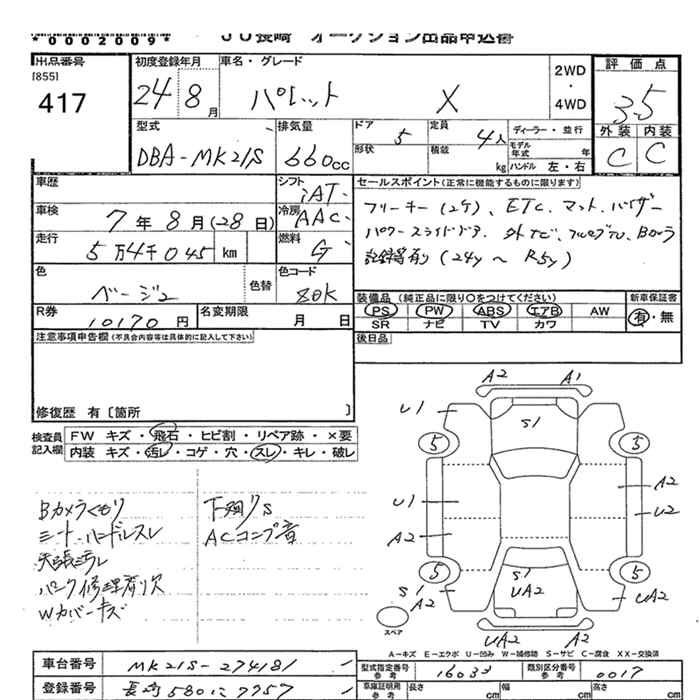 *0002009* JU長崎 オークション出品申込書
出品番号 [855] 417
初度登録年月 24 8月
車名・グレード パレット X
2WD ・ 4WD
評価点 3.5
外装 C 内装 C
型式 DBA-MK21S
排気量 660cc
ドア 5 定員 4人
形状 積載 kg
ディーラー・並行
モデル年式 年
ハンドル 左・右
車歴
シフト iAT
車検 7年8月(28日)
冷房 AAC
走行 5万4千045 km
燃料 G
色 ベージュ 色替
色コード Z0K
R券 10170円
名変期限 月 日
セールスポイント(正常に機能するものに限ります)
フリーキー(2ケ)、ETC、マット、バイザー
パワースライドドア、外ナビ、フルセグTV、Bカメラ
記録簿有り(24y~R5y)
装備品(純正品に限り○をつけてください)
PS PW ABS エアB AW
SR ナビ TV カワ
新車保証書 有・無
後日品
注意事項申告欄(不具合内容等は具体的に記入して下さい)
修復歴 有〔箇所 〕
検査員記入欄
FW キズ・飛石・ヒビ割・リペア跡・×要
内装 キズ・汚レ・コゲ・穴・スレ・キレ・破レ
Bカメラくもり
シート・ハンドルスレ
天張汚レ
パンク修理剤欠
Wカバーキズ
下廻りS
ACコンプ音
A2 A1
U1 S1
5 5
U1 A2 U2
A2
5 5
S1 A2 S1 UA2 UA2
スペア UA2 A2
A-キズ E-エクボ U-凹み W-補修跡 S-サビ C-腐食 XX-交換済
車台番号 MK21S-274181
登録番号 長崎580に7757
型式指定番号 16033 類別区分番号 0017
車庫証明用 長さ cm 幅 cm 高さ cm